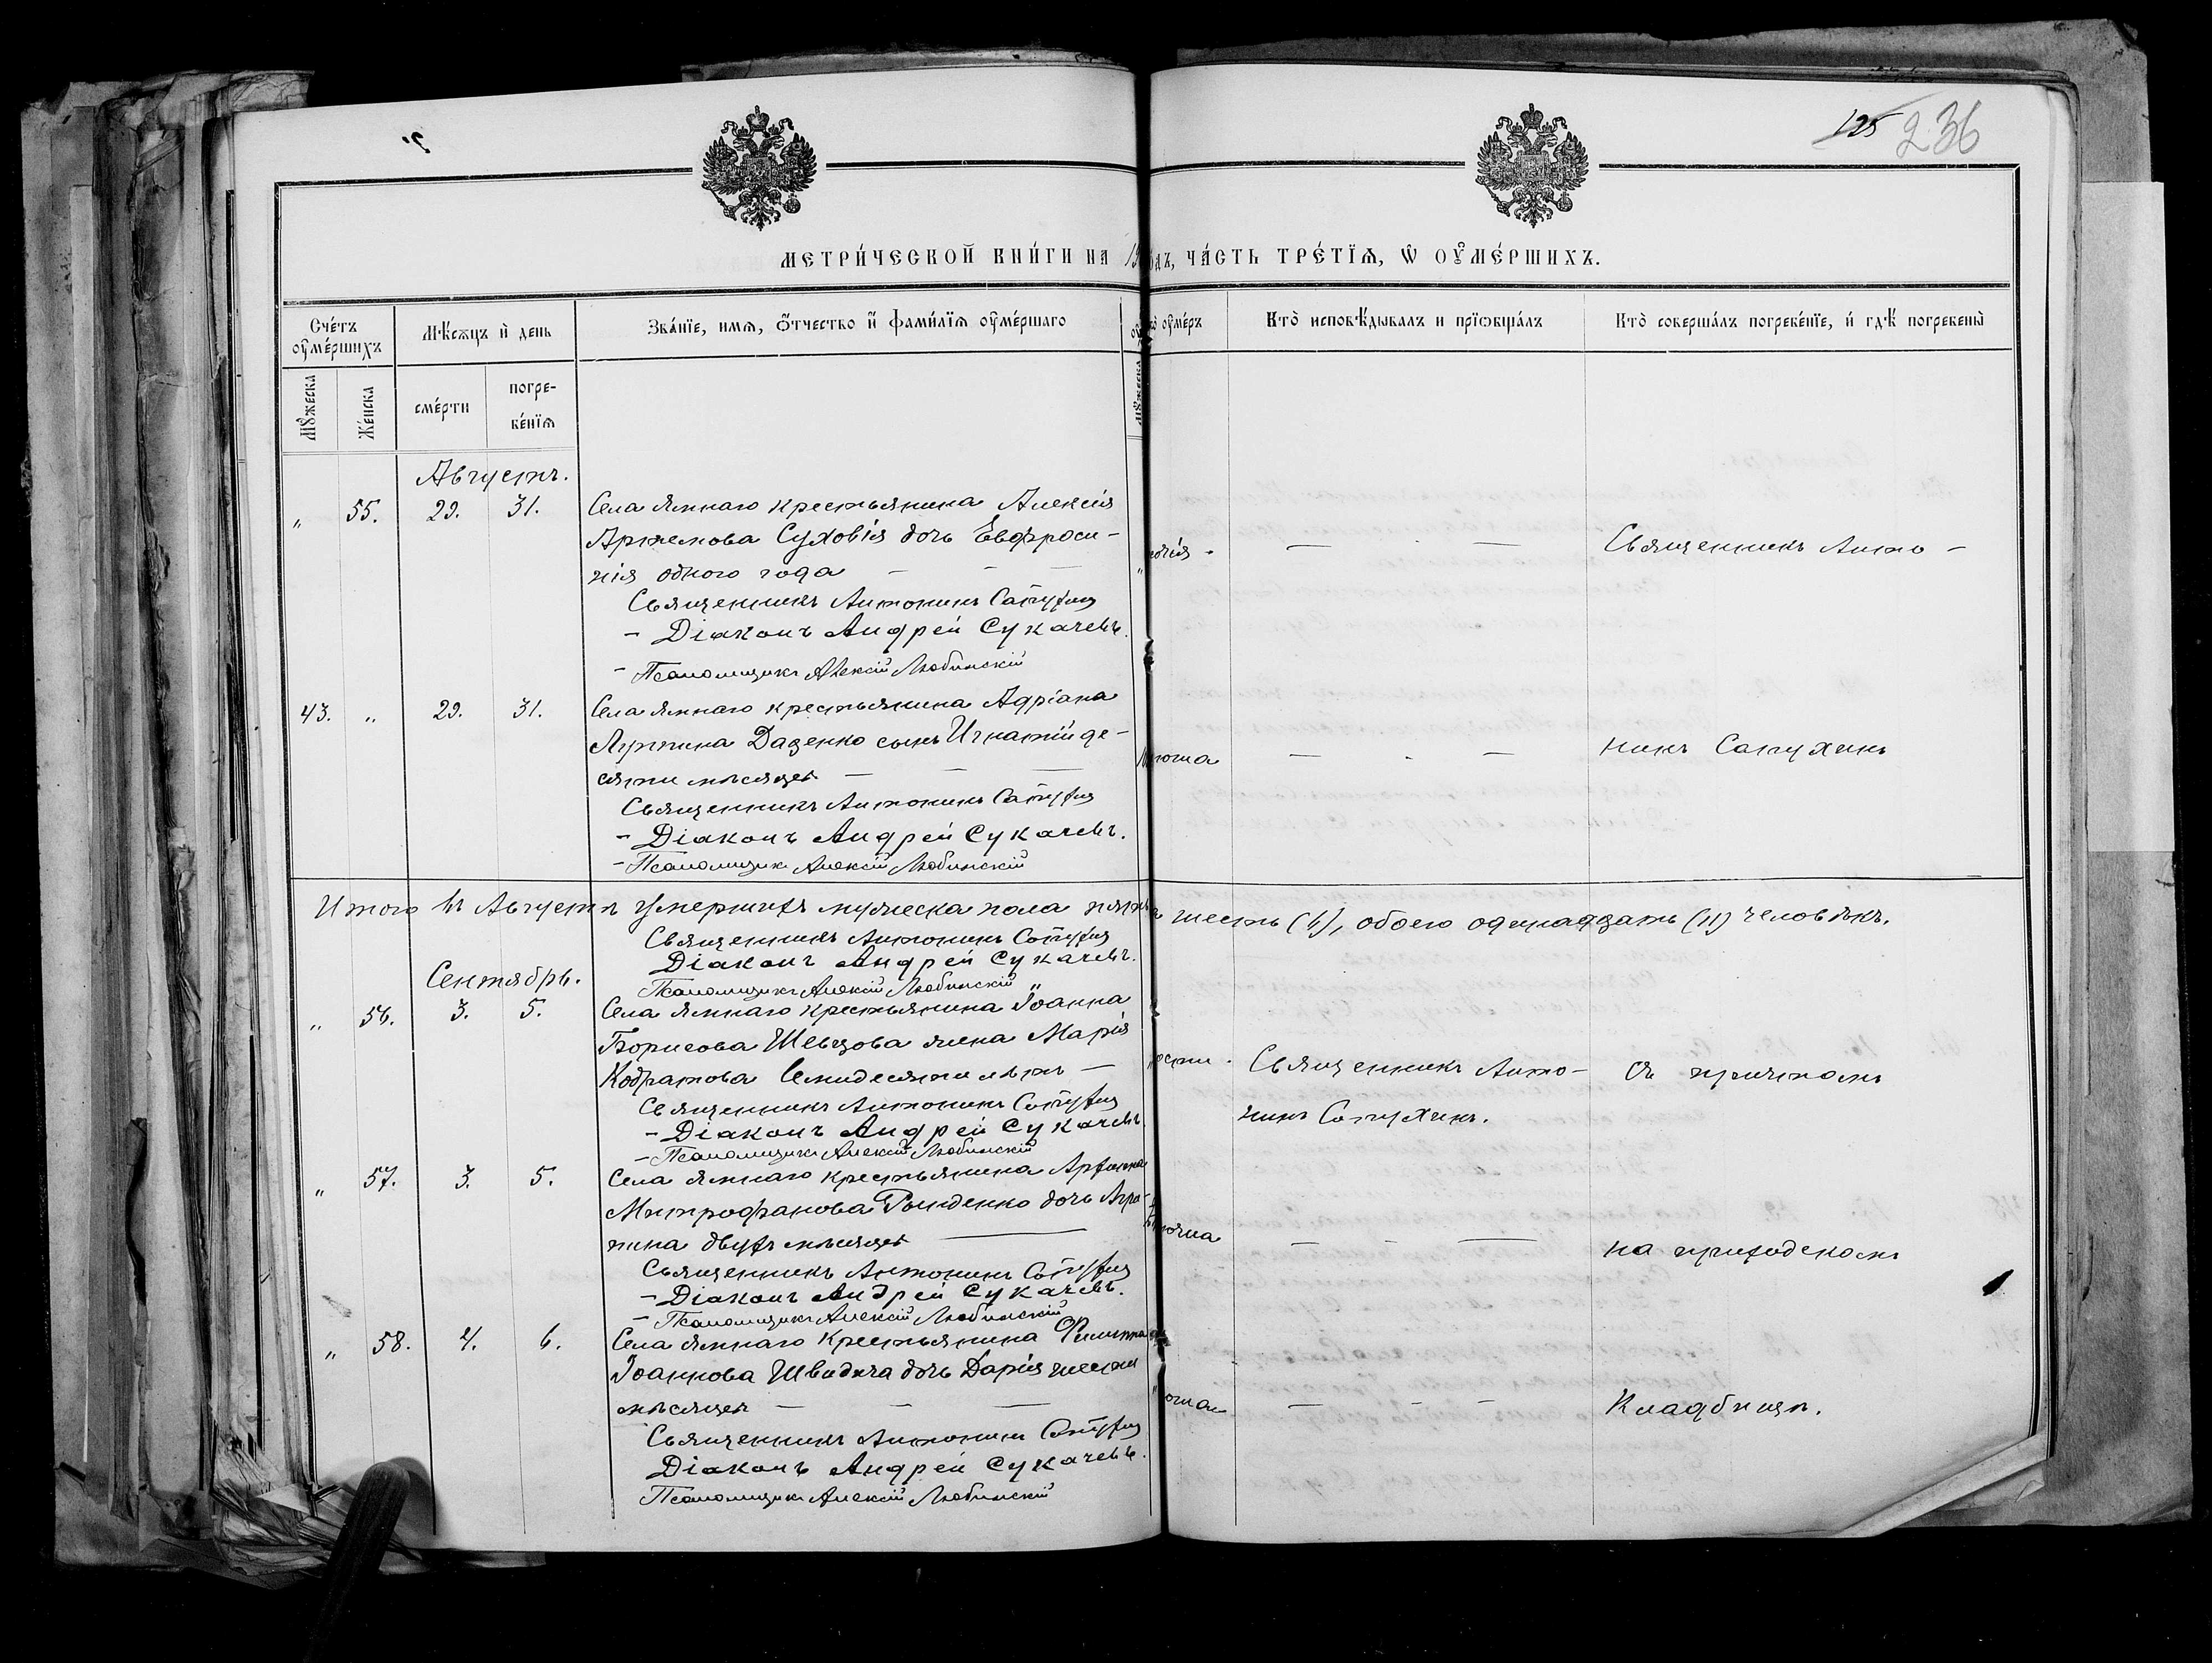 125 236
МЕТРИ́ЧЕСКОЙ КНИ́ГИ НА 19
ЧА́СТЬ ТРЕ́ТЇѦ, Ѡ ОУ҆МЕ́РШИХЪ.
Сче́тъ оу҆ме́ршихъ
Мѣ́сѧцъ и҆ день
Зва́нїе, имѧ, ѻ҆́тчество и҆ фами́лїѧ оу҆ме́ршаго
оу҆ме́ръ
Кто̀ исповѣ́дывалъ и прїѡбща́лъ
Кто̀ соверша́лъ погребе́нїе, и҆ гдѣ̀ погребены̀
Мꙋ́жеска
Же́нска
сме́рти
погребе́нїѧ
Мꙋ́жеска
Августъ.
" 55. 29. 31. Села Ямнаго крестьянина Алексія
Артемова Суховія дочь Евфроси-
нія одного года — — —
Священникъ Антонинъ
- Діаконъ Андрей Сукачевъ.
- Псаломщикъ Алексій Любинскій
— - — Священникъ Анто-
43. " 29. 31. Села Ямнаго крестьянина Адріана
Луппина Даценко сынъ Игнатій де-
сяти мѣсяцевъ — — —
Священникъ Антонинъ
- Діаконъ Андрей Сукачевъ.
- Псаломщикъ Алексій Любинскій
— - — нинъ Сапухинъ
Итого въ Августѣ умершихъ мужеска пола шесть (6), обоего одиннадцать (11) человѣкъ.
Священникъ Антонинъ
Діаконъ Андрей Сукачевъ.
Псаломщикъ Алексій Любинскій
Сентябрь.
" 56. 3. 5. Села Ямнаго крестьянина Іоанна
Борисова Шевцова жена Марія
Кодратова Семидесяти лѣтъ —
Священникъ Антонинъ
- Діаконъ Андрей Сукачевъ
- Псаломщикъ Алексій Любинскій
Священникъ Анто-
нинъ Сапухинъ.
съ причтомъ
" 57. 3. 5. Села Ямнаго крестьянина
Митрофанова дочь Агри-
пина двухъ мѣсяцевъ —
Священникъ Антонинъ
- Діаконъ Андрей Сукачевъ.
- Псаломщикъ Алексій Любинскій
— - — на приходскомъ
" 58. 4. 6. Села Ямнаго Крестьянина Филиппа
Іоаннова Швидича дочь Дарія шести
мѣсяцевъ — — —
Священникъ Антонинъ
Діаконъ Андрей Сукачевъ.
Псаломщикъ Алексій Любинскій
— - - Кладбищѣ.